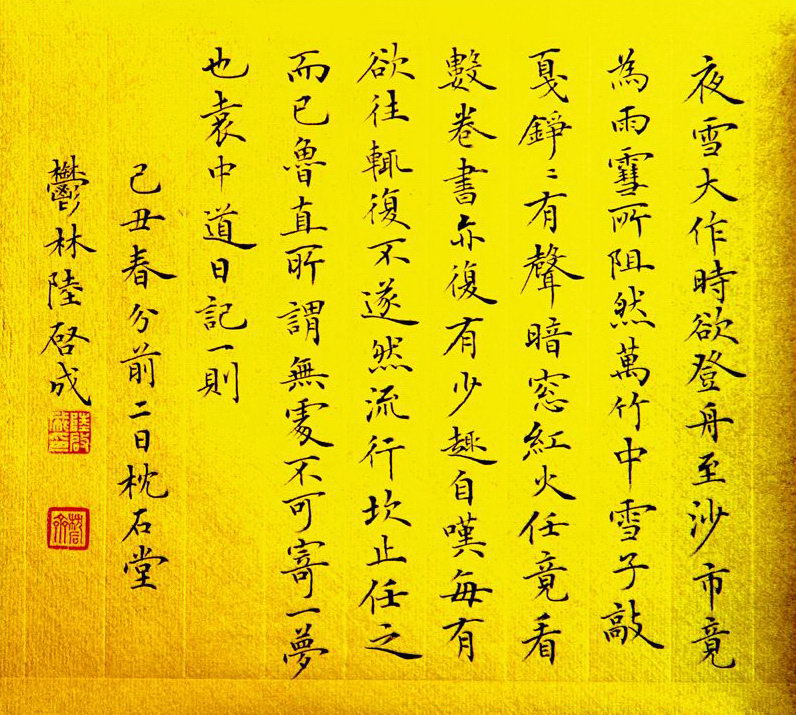 夜雪大作時欲登舟至沙市竟
為雨雪所阻然萬竹中雪子敲
戛錚〻有聲暗窓紅火任竟看
數卷書亦復有少趣自嘆每有
欲往輒復不遂然流行坎止任之
而已魯直所謂無處不可寄一夢
也袁中道日記一則
己丑春分前二日枕石堂
鬱林陸啓成